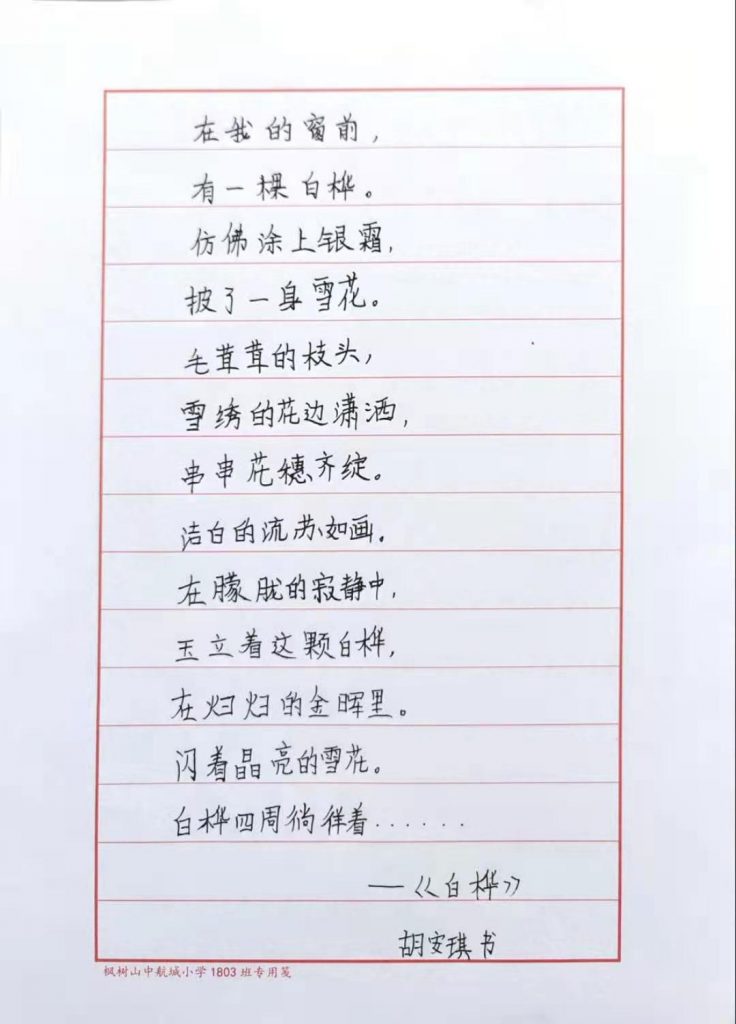 在我的窗前，
有一棵白桦。
仿佛涂上银霜，
披了一身雪花。
毛茸茸的枝头，
雪绣的花边潇洒，
串串花穗齐绽。
洁白的流苏如画。
在朦胧的寂静中，
玉立着这颗白桦，
在灿灿的金晖里。
闪着晶亮的雪花。
白桦四周徜徉着......
—《白桦》
胡安琪 书
枫树山中航城小学1803班专用笺